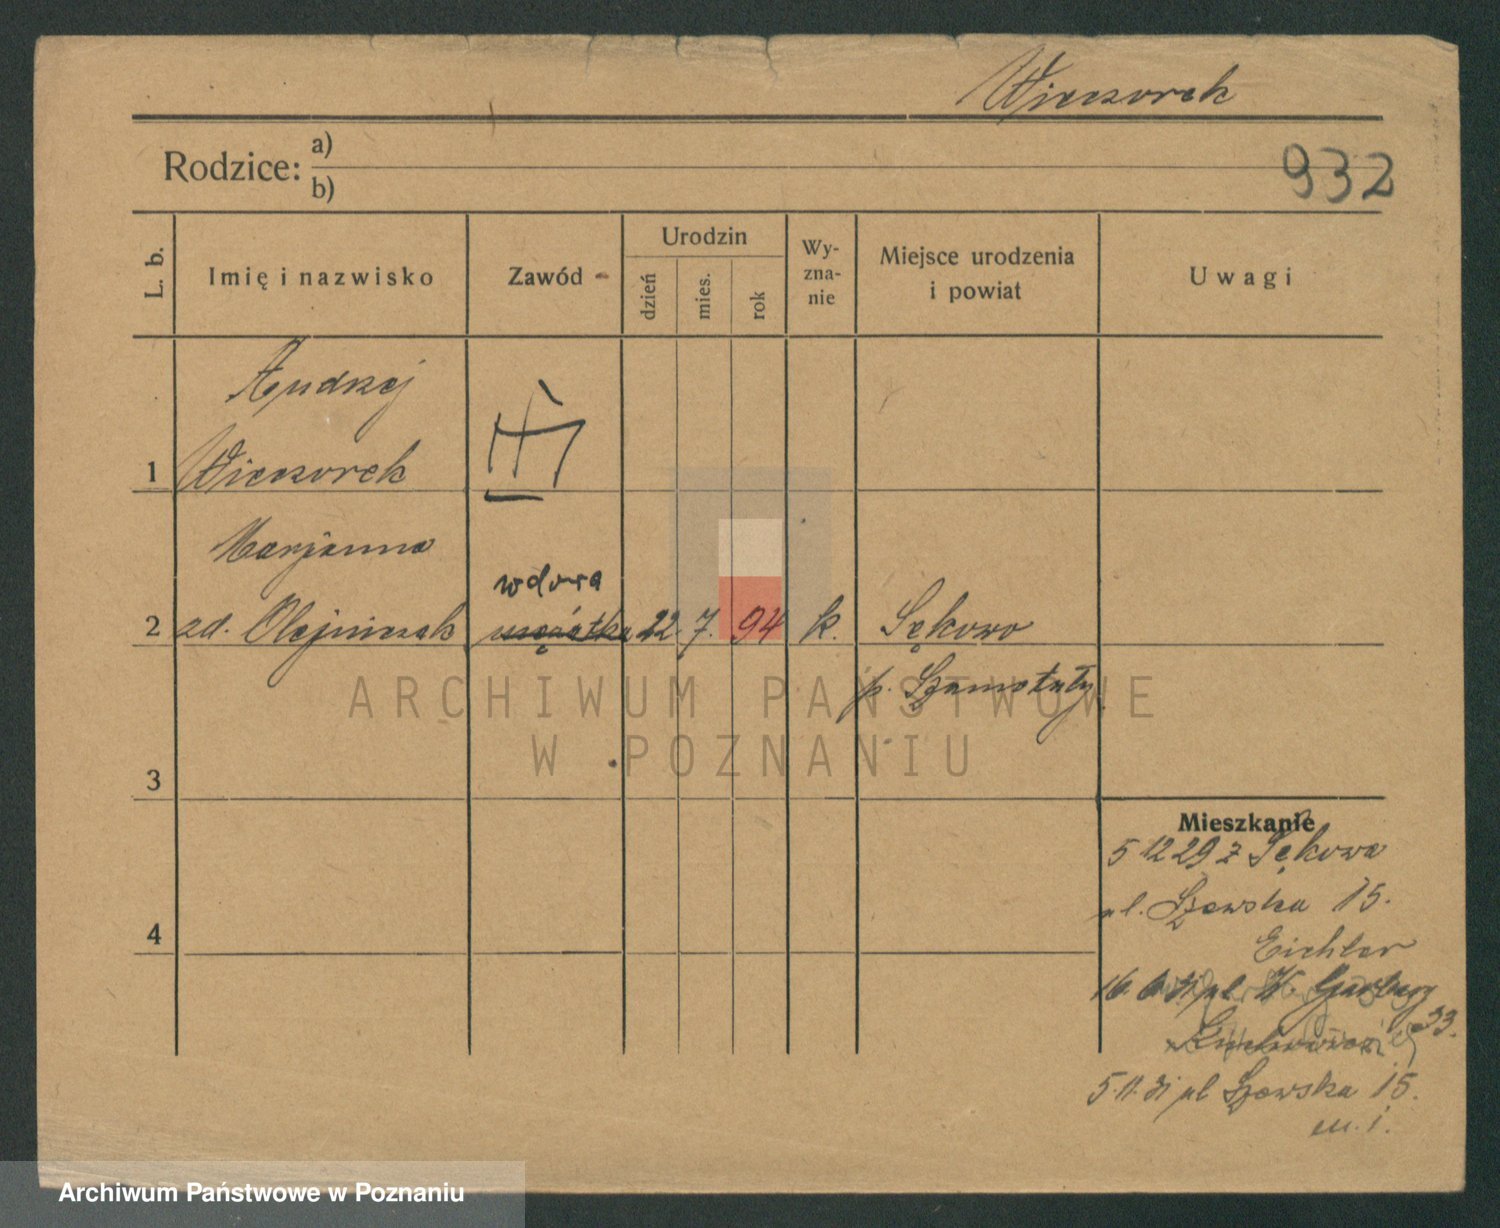 Wieczorek
Rodzice: a)
b)
932
L. b.
Imię i nazwisko
Zawód
Urodzin
dzień
mies.
rok
Wy-
zna-
nie
Miejsce urodzenia
i powiat
Uwagi
Andrzej
1 Wieczorek
Marjanna
wdowa
2 zd. Olejniczak 22. 7. 94 k. Sękowo
p. Szamotuły
ARCHIWUM PAŃSTWOWE
W POZNANIU
3
Mieszkanie
5 12 29 z Sękowa
ul. Szewska 15.
4
Eichler
16. ul. W. Garbary
33.
5. 11. 31 ul Szewska 15.
m. 1.
Archiwum Państwowe w Poznaniu